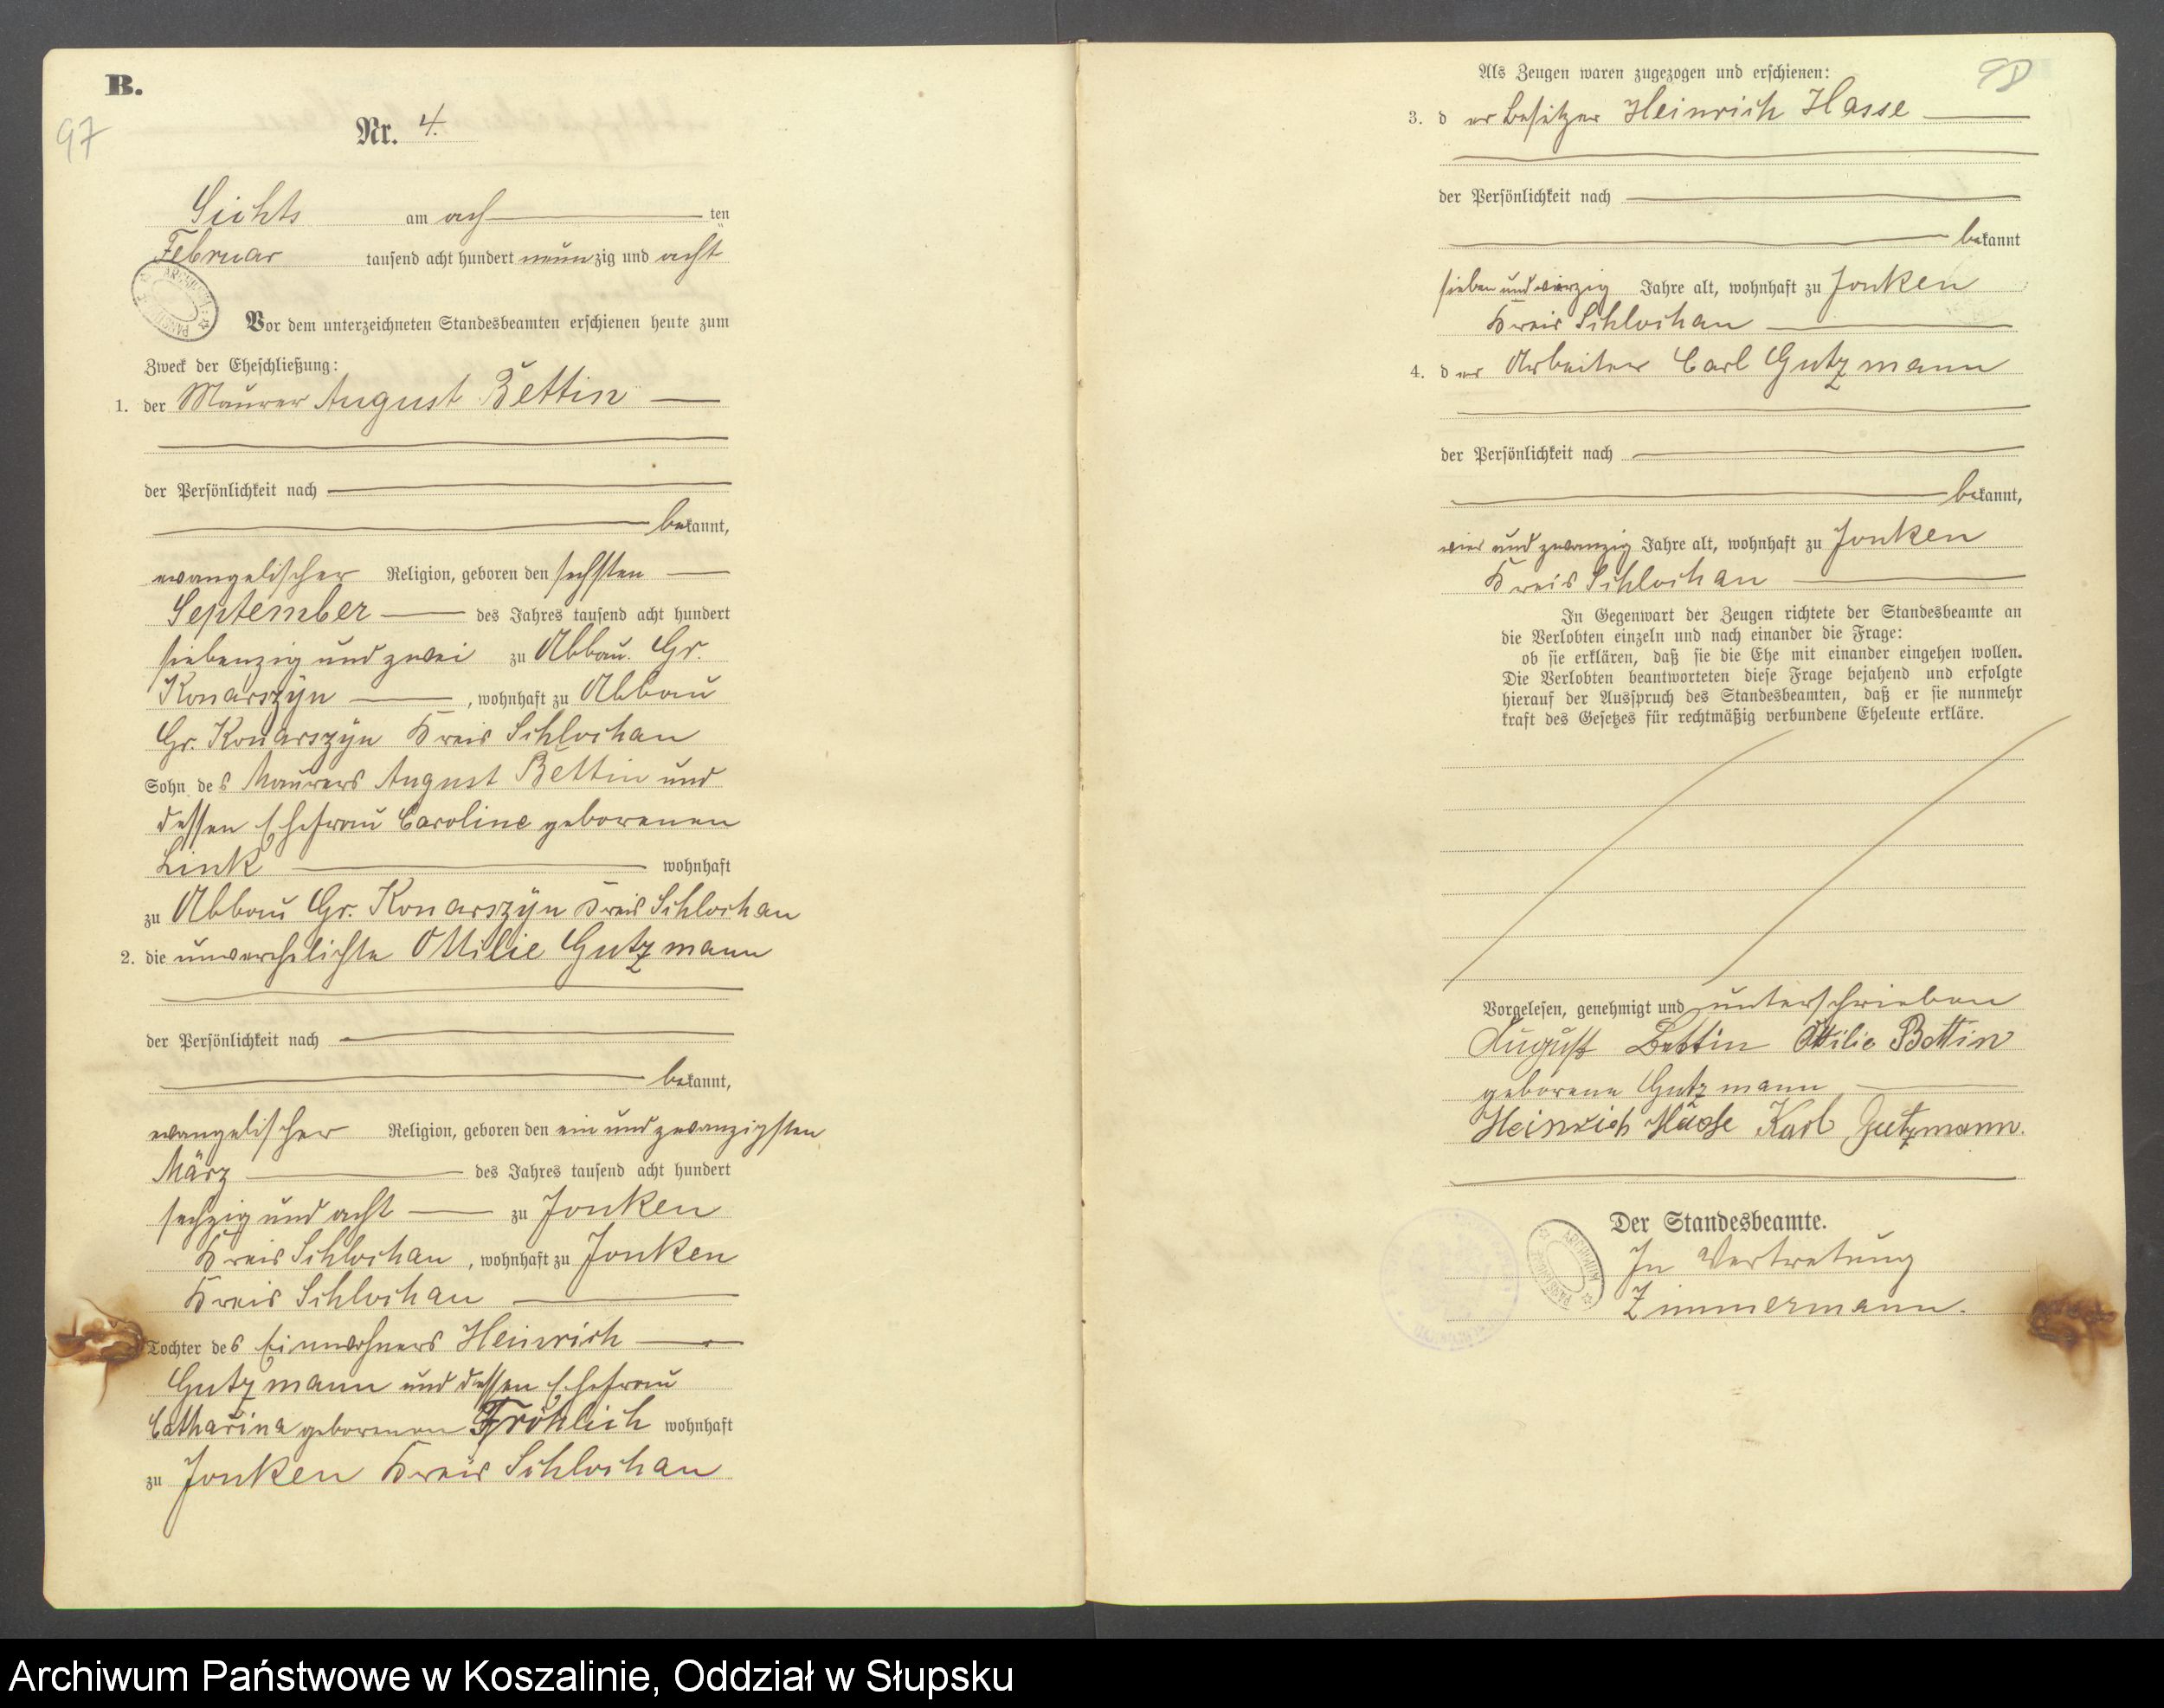 B.
97
Nr. 4.
Sichts am ach ten
Februar tausend acht hundert neunzig und acht
Vor dem unterzeichneten Standesbeamten erschienen heute zum
Zweck der Eheschließung:
1. der Maurer August Bettin
der Persönlichkeit nach
bekannt,
evangelischer Religion, geboren den sechsten
September des Jahres tausend acht hundert
siebenzig und zwei zu Abbau Gr.
Konarszyn, wohnhaft zu Abbau
Gr. Konarszyn Kreis Schlochau
Sohn des Maurers August Bettin und
dessen Ehefrau Caroline geborenen
Link wohnhaft
zu Abbau Gr. Konarszyn Kreis Schlochau
2. die unverehelichte Ottilie Gutzmann
der Persönlichkeit nach
bekannt,
evangelischer Religion, geboren den ein und zwanzigsten
März des Jahres tausend acht hundert
sechzig und acht zu Jonken
Kreis Schlochau, wohnhaft zu Jonken
Kreis Schlochau
Tochter des Einwohners Heinrich
Gutzmann und dessen Ehefrau
Catharina geborenen Fröhlich wohnhaft
zu Jonken Kreis Schlochau
98
Als Zeugen waren zugezogen und erschienen:
3. d er Besitzer Heinrich Hasse
der Persönlichkeit nach
bekannt
sieben und vierzig Jahre alt, wohnhaft zu Jonken
Kreis Schlochau
4. der Arbeiter Carl Gutzmann
der Persönlichkeit nach
bekannt,
vier und zwanzig Jahre alt, wohnhaft zu Jonken
Kreis Schlochau
In Gegenwart der Zeugen richtete der Standesbeamte an
die Verlobten einzeln und nach einander die Frage:
ob sie erklären, daß sie die Ehe mit einander eingehen wollen.
Die Verlobten beantworteten diese Frage bejahend und erfolgte
hierauf der Ausspruch des Standesbeamten, daß er sie nunmehr
kraft des Gesetzes für rechtmäßig verbundene Eheleute erkläre.
Vorgelesen, genehmigt und unterschrieben
August Bettin Ottilie Bettin
geborene Gutzmann
Heinrich Hasse Karl Gutzmann.
Der Standesbeamte.
In Vertretung
Zimmermann.
Archiwum Państwowe w Koszalinie, Oddział w Słupsku